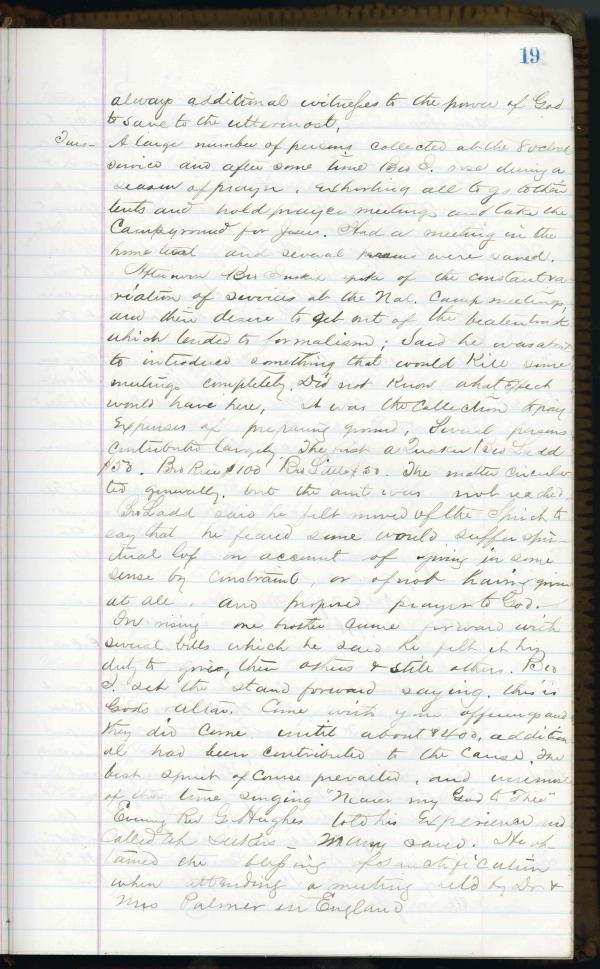 19
always additional witnesses to the power of God
to save to the uttermost,
Tues- A large number of persons collected at the 8 oclock
service and after some time Bro I. rose during a
season of prayer, exhorting all to go to their
tents and hold prayer meetings and take the
Campground for Jesus. Had a meeting in the
home tent and several were saved.
Afternoon Bro Inskip spoke of the constant va-
riation of services at the Nat. Camp meetings,
and their desire to get out of the beaten track
which tended to formalism; Said he was about
to introduce something that would Kill some
meetings completely. Did not Know what effect
would have here, it was the Collection to pay
Expenses of preparing ground, Several persons
contributed largely. The first a Quaker Bro Ladd
$50. Bro Rice $100 Bro 50. The matter circula-
ted generally, but the amt was not reached
Bro Ladd said he felt moved of the Spirit to
say that he feared some would suffer spir-
itual loss on account of giving in some
sense by constraint, or of not having given
at all, and proposed prayer to God.
In rising one brother came forward with
several bills which he said he felt it his
duty to give, then others & still others. Bro
I. set the stand forward saying, this is
Gods altar. Come with your offerings and
they did come until about $400, addition
al had been contributed to the cause. The
best spirit of course prevailed, and were most
of the time singing "Nearer my God to Thee"
Evening Rev G. Hughes told his Experience and
called up seekers Many saved. He ob-
tained the blessing of sanctification
when attending a meeting held by Dr &
Mrs Palmer in England